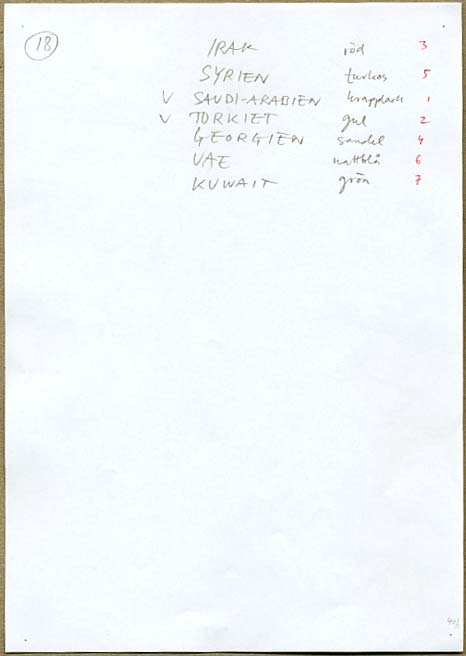 18
IRAK röd 3
SYRIEN turkos 5
V SAUDI-ARABIEN krapplack 1
V TURKIET gul 2
GEORGIEN sandel 4
UAE nattblå 6
KUWAIT grön 7